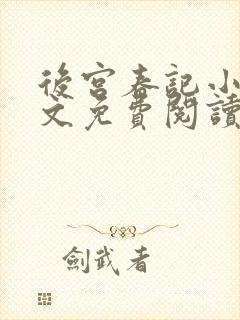 後宮春記小
文免費閱讀
劍武者